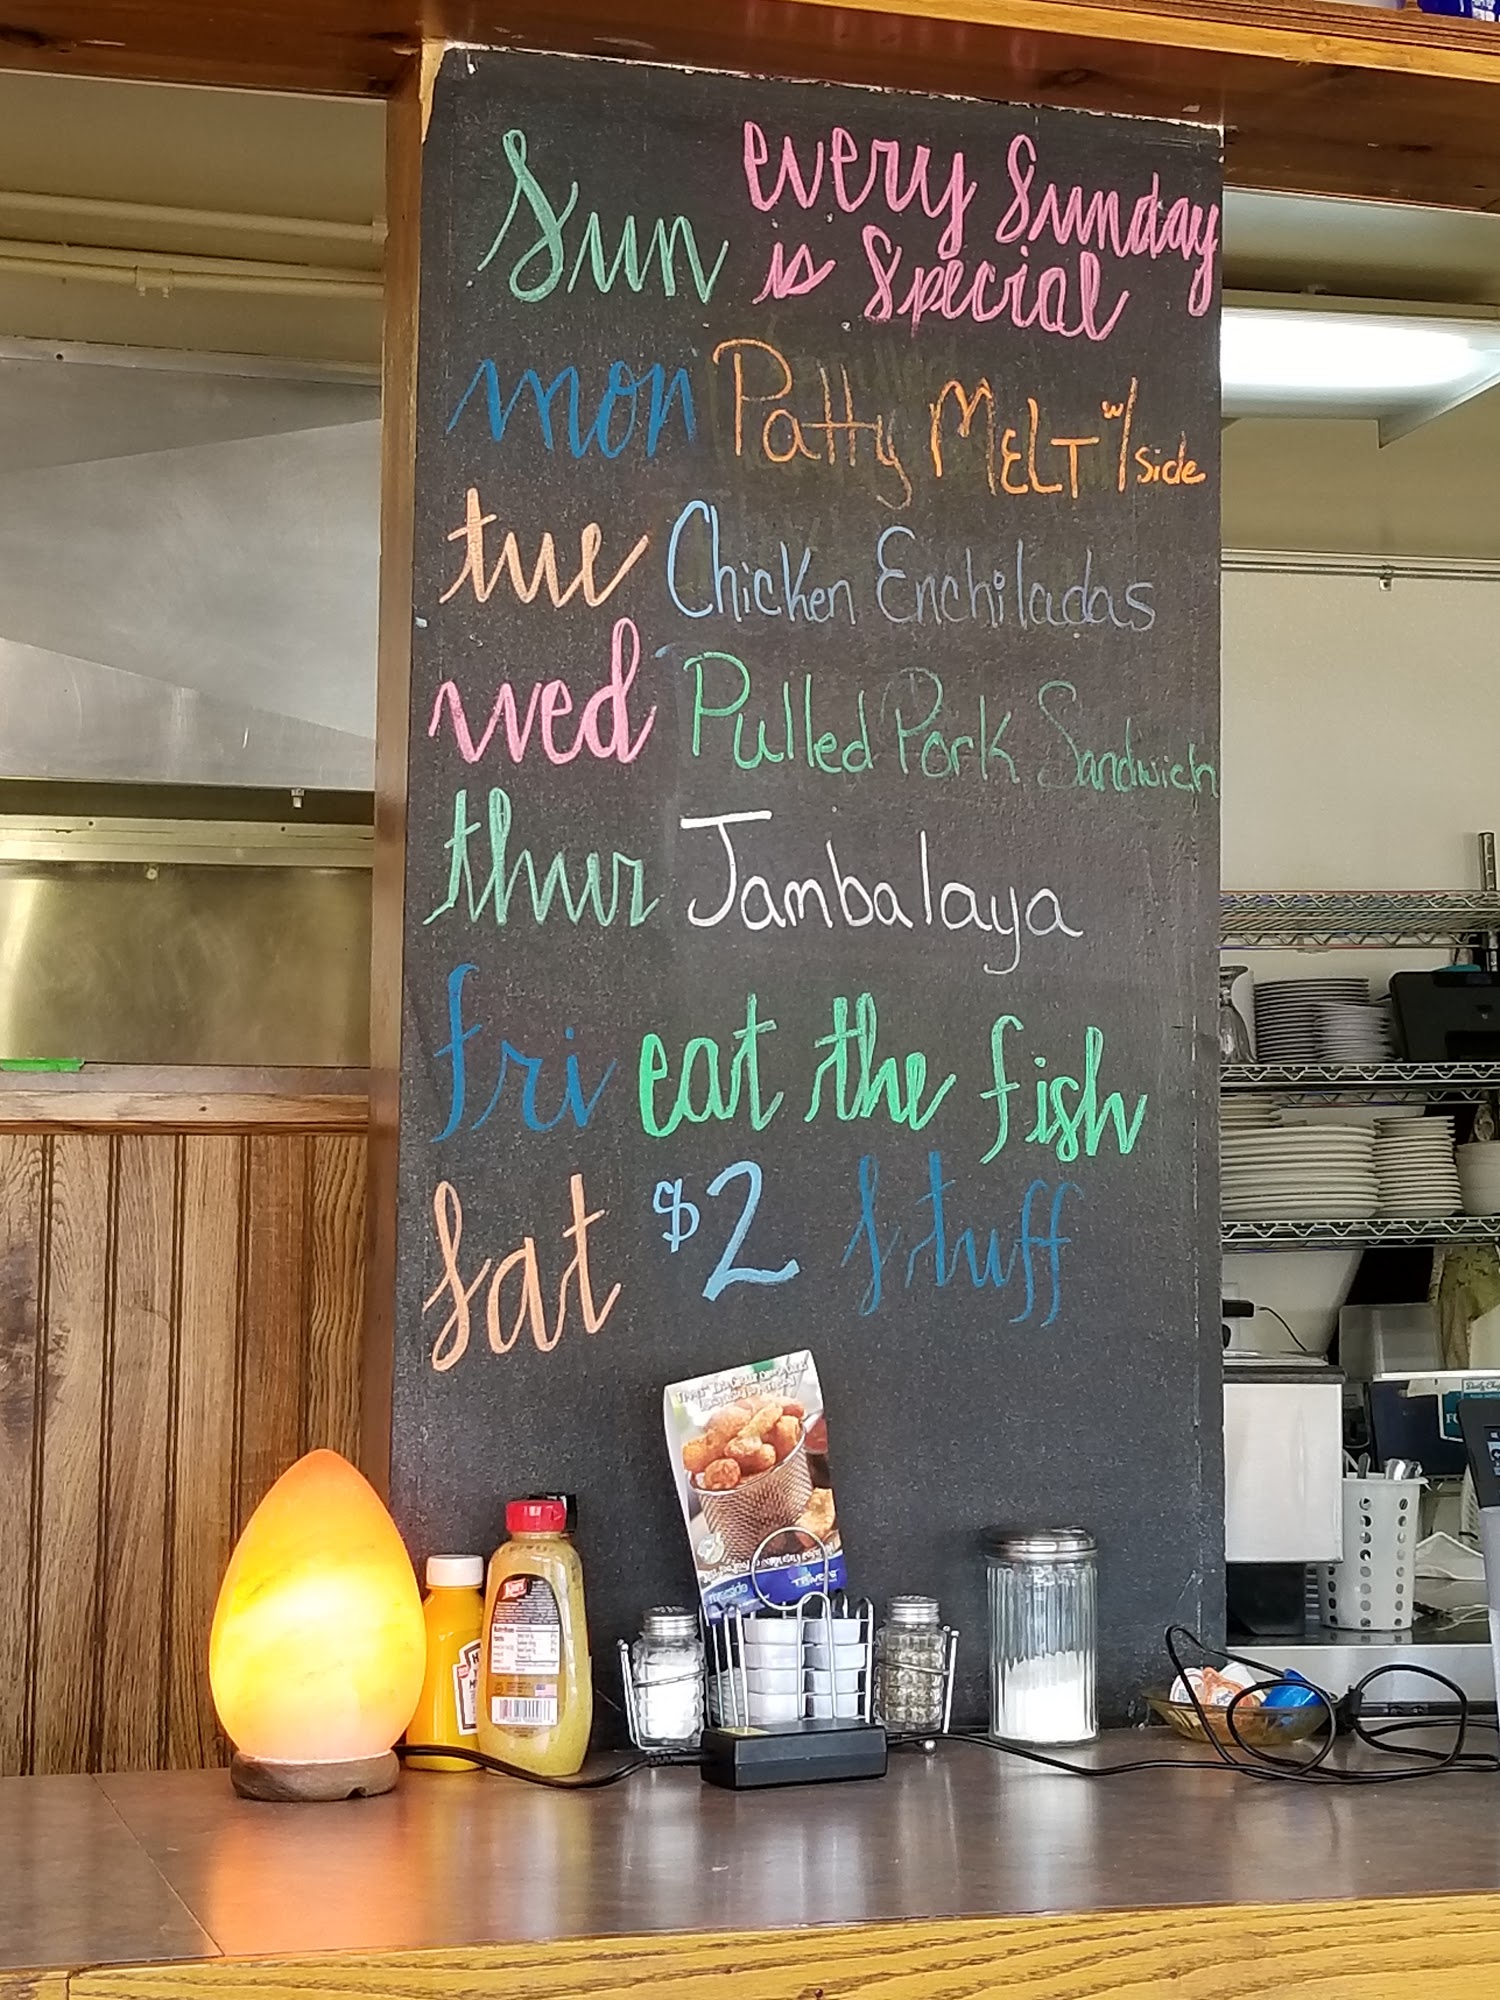 Sun every Sunday
is Special
mon Patty MELT w/side
tue Chicken Enchiladas
wed Pulled Pork Sandwich
thur Jambalaya
fri eat the fish
sat $2 stuff